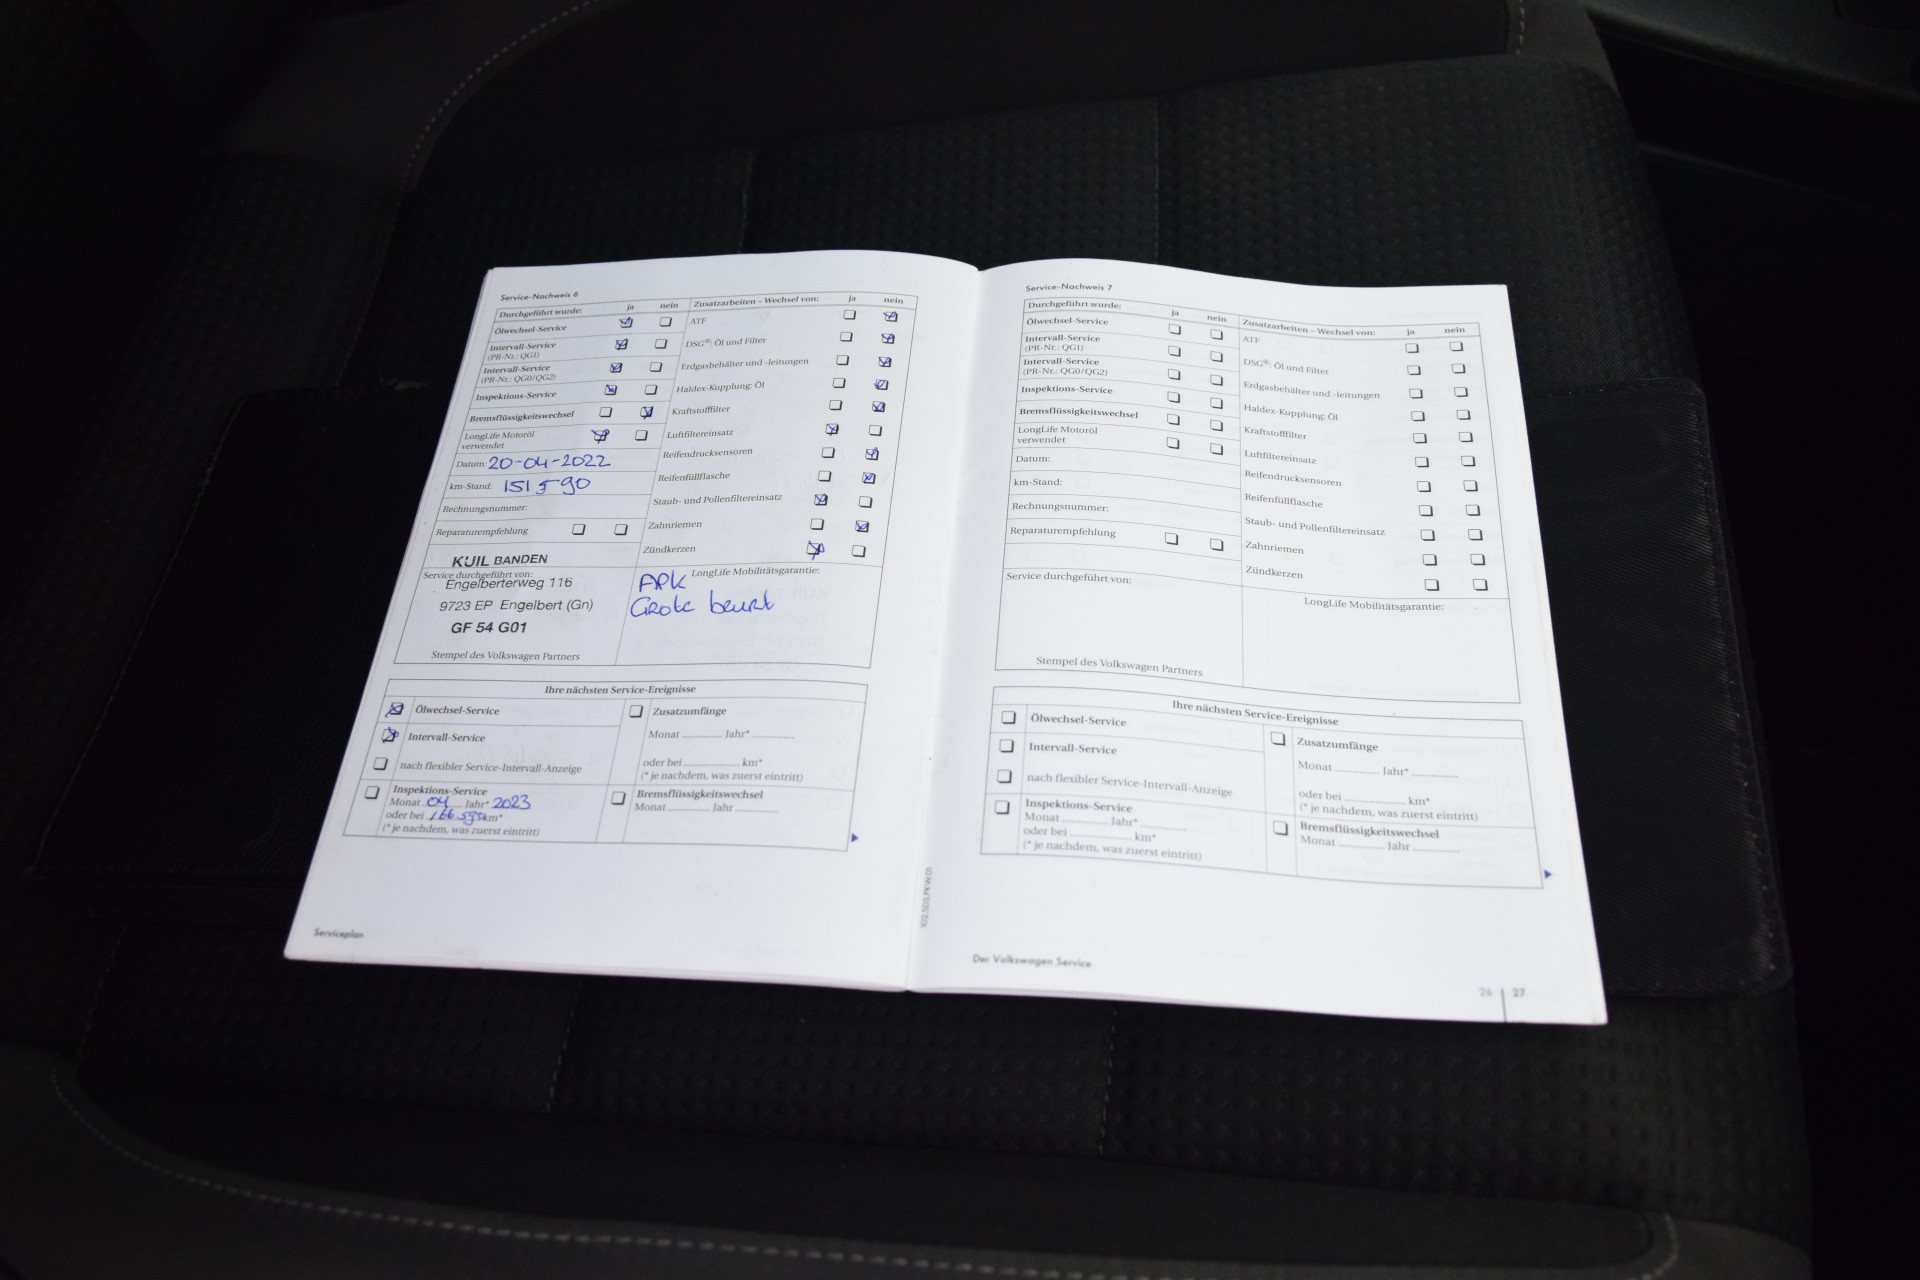 Service-Nachweis 6
Durchgeführt wurde: ja nein
Ölwechsel-Service
Intervall-Service
(PR-Nr.: QG1)
Intervall-Service
(PR-Nr.: QG0/QG2)
Inspektions-Service
Bremsflüssigkeitswechsel
LongLife Motoröl
verwendet
Datum: 20-04-2022
km-Stand: 151590
Rechnungsnummer:
Reparaturempfehlung
Zusatzarbeiten – Wechsel von: ja nein
ATF
DSG®: Öl und Filter
Erdgasbehälter und -leitungen
Haldex-Kupplung: Öl
Kraftstofffilter
Luftfiltereinsatz
Reifendrucksensoren
Reifenfüllflasche
Staub- und Pollenfiltereinsatz
Zahnriemen
Zündkerzen
KUIL BANDEN
Service durchgeführt von:
Engelberterweg 116
9723 EP Engelbert (Gn)
GF 54 G01
Stempel des Volkswagen Partners
LongLife Mobilitätsgarantie:
APK
Grote beurt
Ihre nächsten Service-Ereignisse
Ölwechsel-Service
Intervall-Service
nach flexibler Service-Intervall-Anzeige
Inspektions-Service
Monat 04 Jahr* 2023
oder bei 166590 km*
(* je nachdem, was zuerst eintritt)
Zusatzumfänge
Monat ............ Jahr* ............
oder bei ............ km*
(* je nachdem, was zuerst eintritt)
Bremsflüssigkeitswechsel
Monat ............ Jahr ............
Serviceplan
Service-Nachweis 7
Durchgeführt wurde: ja nein
Ölwechsel-Service
Intervall-Service
(PR-Nr.: QG1)
Intervall-Service
(PR-Nr.: QG0/QG2)
Inspektions-Service
Bremsflüssigkeitswechsel
LongLife Motoröl
verwendet
Datum:
km-Stand:
Rechnungsnummer:
Reparaturempfehlung
Zusatzarbeiten – Wechsel von: ja nein
ATF
DSG®: Öl und Filter
Erdgasbehälter und -leitungen
Haldex-Kupplung: Öl
Kraftstofffilter
Luftfiltereinsatz
Reifendrucksensoren
Reifenfüllflasche
Staub- und Pollenfiltereinsatz
Zahnriemen
Zündkerzen
Service durchgeführt von:
Stempel des Volkswagen Partners
LongLife Mobilitätsgarantie:
Ihre nächsten Service-Ereignisse
Ölwechsel-Service
Intervall-Service
nach flexibler Service-Intervall-Anzeige
Inspektions-Service
Monat ............ Jahr* ............
oder bei ............ km*
(* je nachdem, was zuerst eintritt)
Zusatzumfänge
Monat ............ Jahr* ............
oder bei ............ km*
(* je nachdem, was zuerst eintritt)
Bremsflüssigkeitswechsel
Monat ............ Jahr ............
Der Volkswagen Service
26 | 27